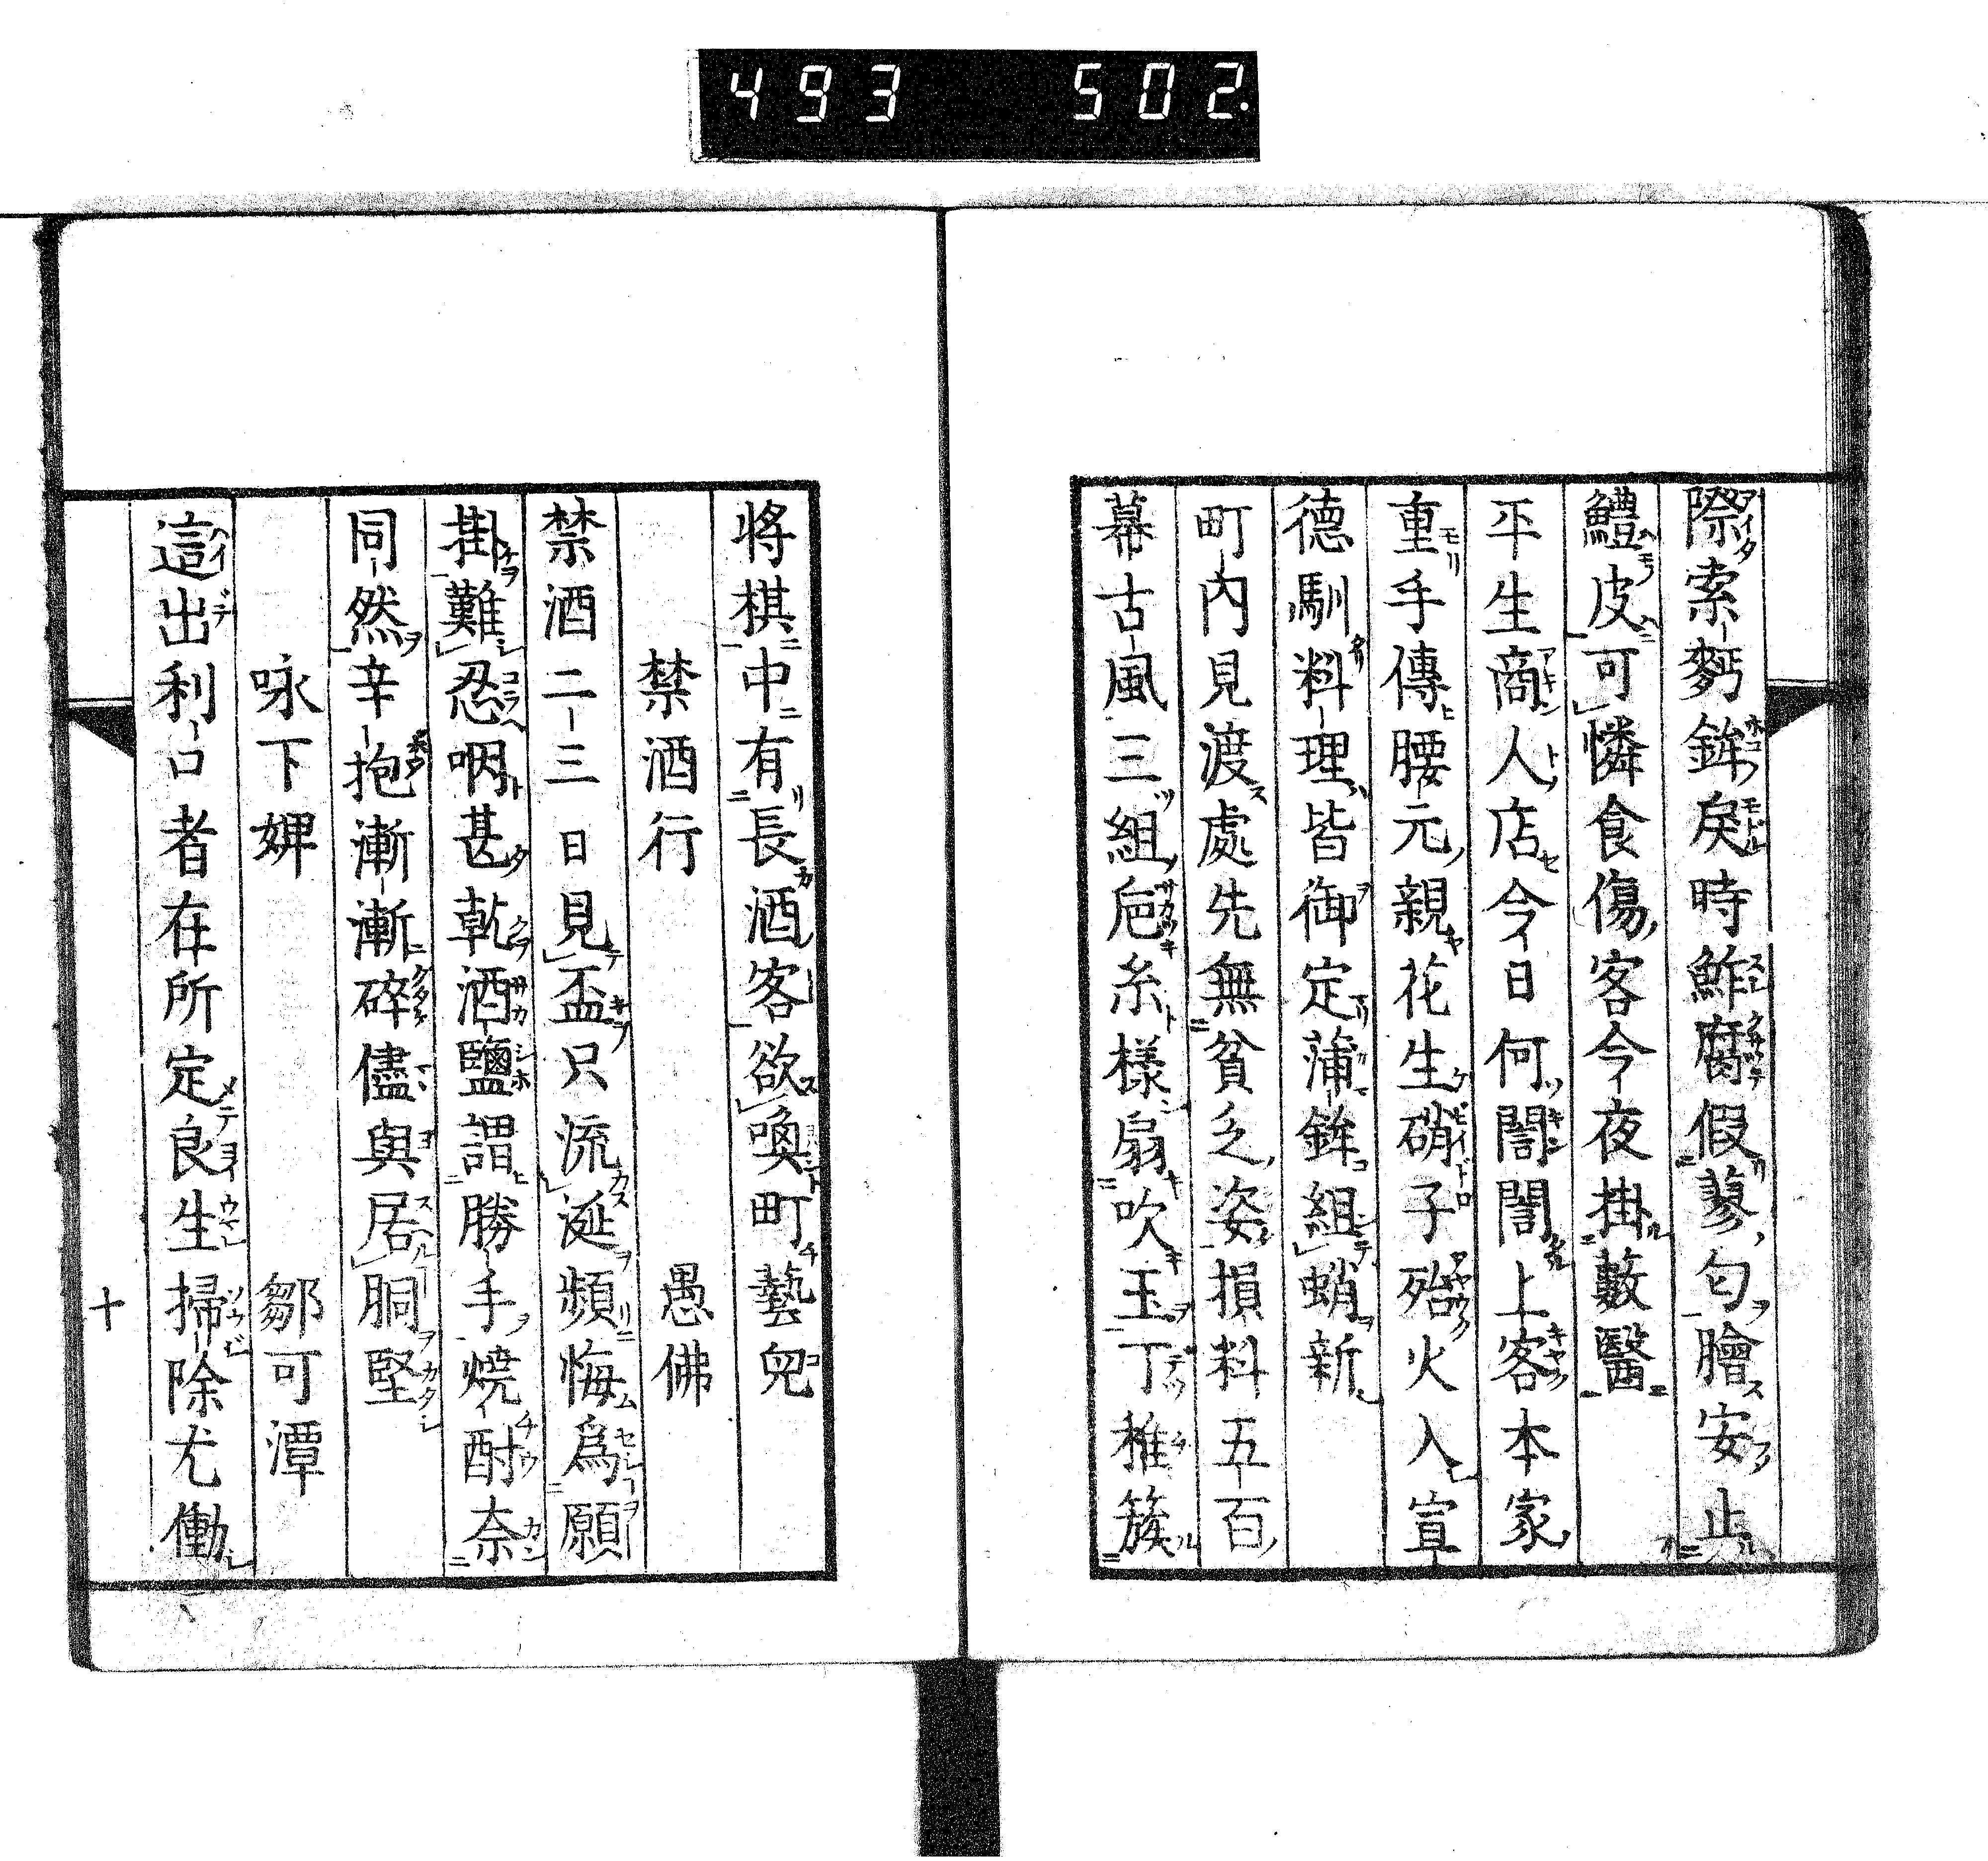 493 502.
際索麪鉾戾時鮓腐假蓼匂膾安止
鱧皮可憐食傷客今夜掛藪醫
平生商人店今日何誾誾上客本家
重手傳腰元親花生硝子殆火入宣
德馴料理皆御定蒲鉾組蛸新
町內見渡處先無貧乏姿損料五百
幕古風三組巵糸樣扇吹玉丁稚簇
將棋中有長酒客欲喚町藝兒
禁酒行 愚佛
禁酒二三日見盃只流涎頻悔爲願
掛難忍咽甚乾酒鹽謂勝手燒酎奈
同然辛抱漸漸碎儘與居胴堅
咏下婢 鄒可潭
這出利口者在所定良生掃除尤働
十